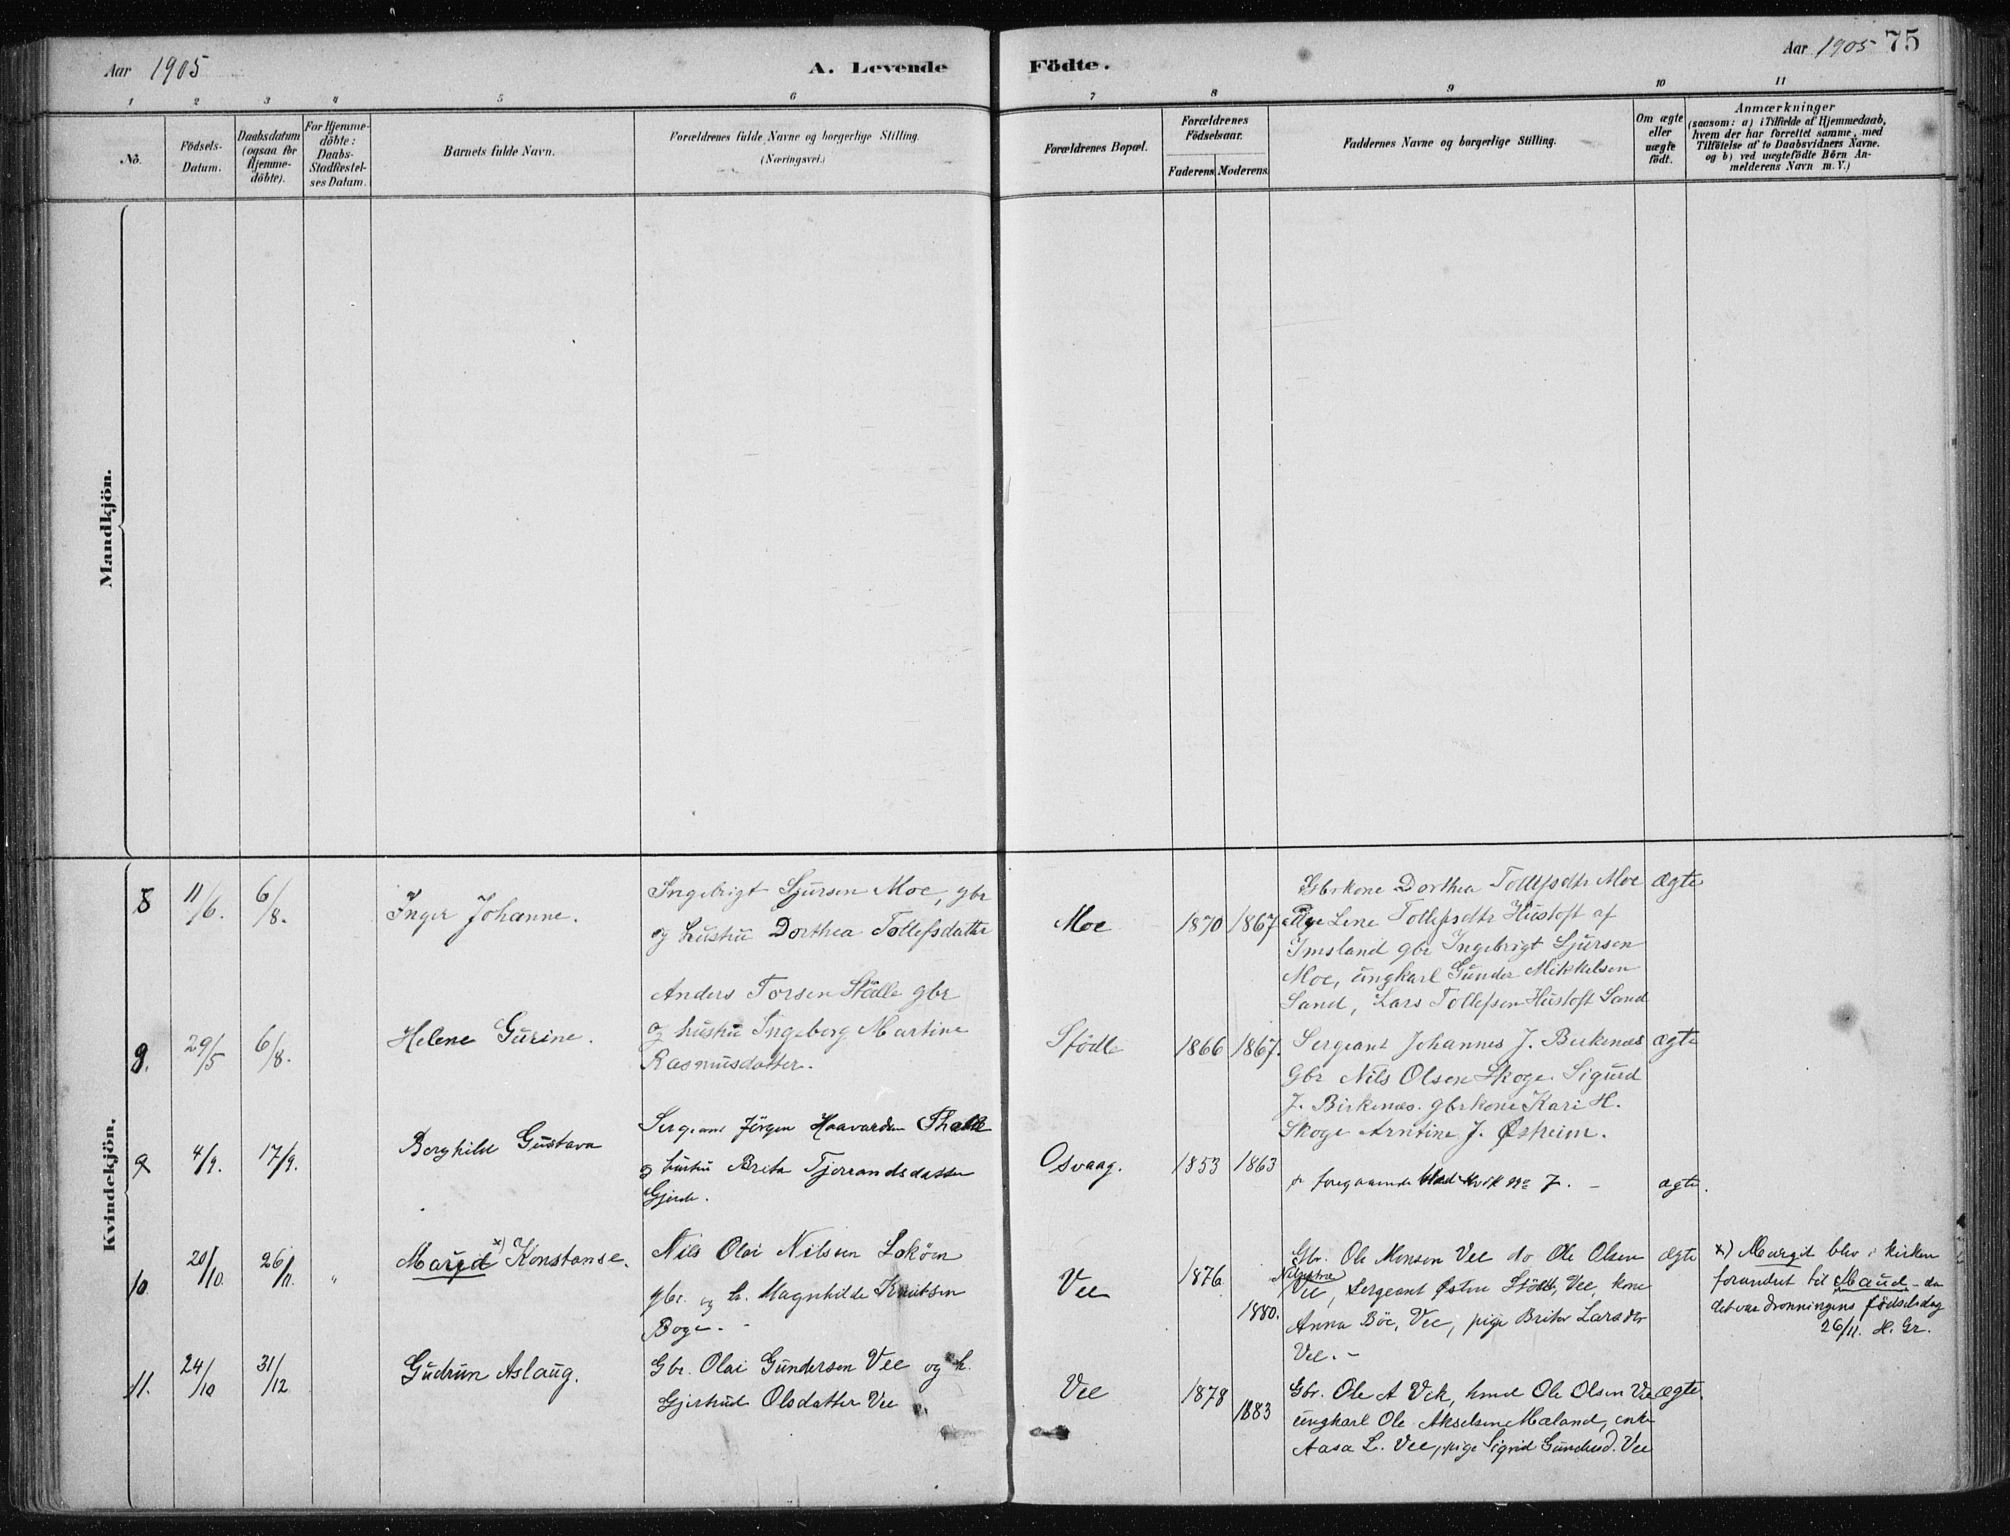 Aar 1905
A. Levende
Födte.
Aar 1905 75
1 2 3 4 5 6 7 8 9 10 11
No.
Födsels-
Datum.
Daabsdatum
(ogsaa for
Hjemme-
döbte).
For Hjemme-
döbte:
Daabs-
Stadfæstel-
ses Datum.
Barnets fulde Navn.
Forældrenes fulde Navne og borgerlige Stilling.
(Næringsvei.)
Forældrenes Bopæl.
Forældrenes
Födselsaar.
Faderens. Moderens.
Faddernes Navne og borgerlige Stilling.
Om ægte
eller
uægte
födt.
Anmærkninger
(saasom: a) i Tilfælde af Hjemmedaab,
hvem der har forrettet samme, med
Tilföielse af to Daabsvidners Navne.
og b) ved uægtefödte Börn An-
melderens Navn m. V.)
Mandkjön.
Kvindekjön.
8
11/6.
6/8.
Inger Johanne.
Ingebrigt Sjursen Moe, gbr
og hustru Dorthea Tollefsdatter
Moe
1870
1867
Gbrkone Dorthea Tollefsdtr Moe
Pige Line Tollefsdtr Hustoft af
Imsland gbr Ingebrigt Sjursen
Moe, ungkarl Gunder Mikkelsen
Sand, Lars Tollefsen Hustoft Sand
ægte
9.
29/5
6/8.
Helene Gurine.
Anders Torsen Stödle gbr
og hustru Ingeborg Martine
Rasmusdatter.
Stödle
1866
1867.
Sergeant Johannes J. Birkenæs
Gbr Nils Olsen Skoge. Sigurd
J. Birkenæs. gbrkone Kari H.
Skoge Arntine J. Østheim.
ægte
9
4/9.
17/9.
Berghild Gustava
Sergeant Jörgen Haavardsen
og hustru Brita Tjerrandsdatter
Gjerde.
Osvaag.
1853
1863
foregaaende blad No 7. -
ægte.
10.
20/10.
26/11.
"
Maud x) Konstanse.
Nils Olai Nilsen Loköen
gbr. og h. Magnhilde Knutsen
Boge. -
Vee
1876
1880.
Gbr. Ole Monsen Vee do Ole Olsen
Vee, Sergeant Østen Stödle, Vee, kone
Anna Böe, Vee, pige Brita Larsdtr
Vee. -
ægte
x) Margit blev i kirken
forandret til Maud - da
det var dronningens födselsdag
26/11. H. Gr.
11.
24/10
31/12
Gudrun Aslaug.
Gbr. Olai Gundersen Vee og h.
Gjertrud Olsdatter Vee
Vee
1878
1883
Gbr. Ole A Vek, hmd Ole Olsen Vee
ungkarl Ole Akselsen Mæland, enke
Aasa L. Vee, pige Sigrid Gundersd. Vee
ægte.